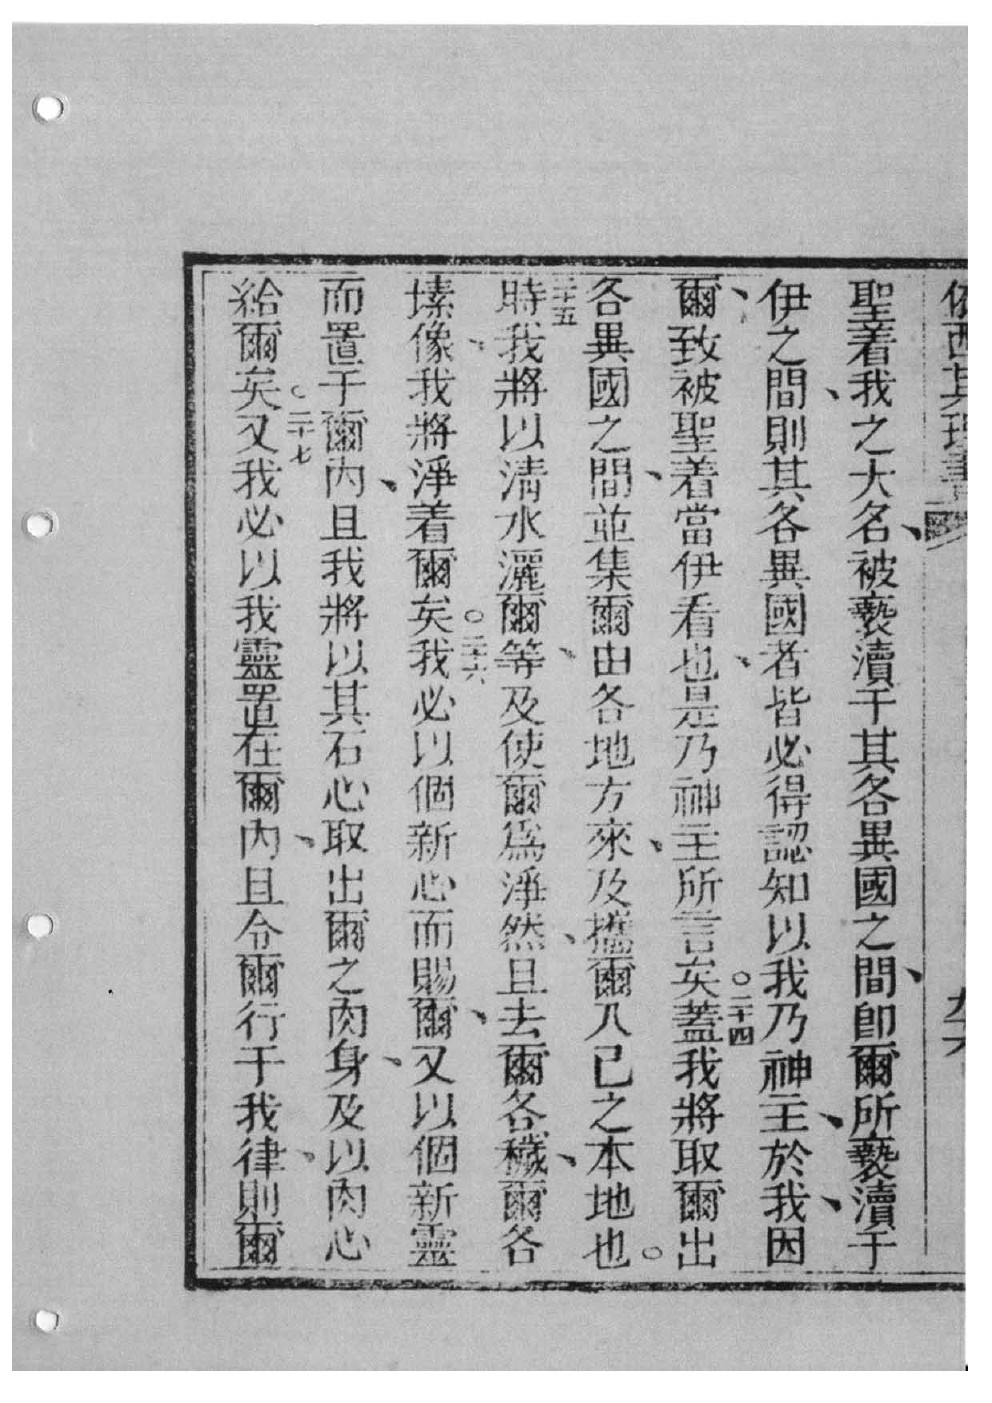 聖着我之大名、被褻瀆于其各異國之間、卽爾所褻瀆于
伊之間、則其各異國者皆必得認知以我乃神主、於我、因
爾、致被聖着當伊看也、是乃神主所言矣。二十四蓋我將取爾出
各異國之間、並集爾由各地方來、及攜爾入已之本地也。
二十五時我將以淸水灑爾等、及使爾爲淨然、且去爾各穢、爾各
塐像、我將淨着爾矣。二十六我必以個新心而賜爾、又以個新靈
而置于爾內、且我將以其石心取出爾之肉身、及以肉心
給爾矣。二十七又我必以我靈置在爾內、且令爾行于我律、則爾